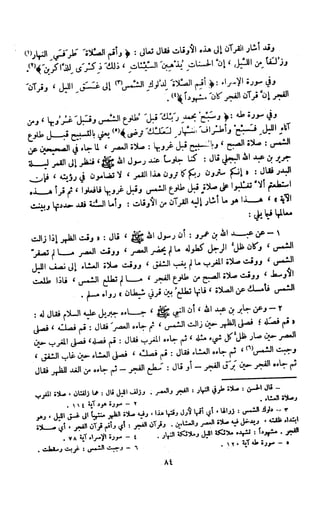 وقد أشار القرآن إلى هذه الأوقات فقال تعالى : ﴿ وأقم الصلاة طرفي النهار(١)
وزلفا من الليل ، إن الحسنات يذهبن السيئات ، ذلك ذكرى للذاكرين ﴾(٢).
وفي سورة الإسراء : ﴿ أقم الصلاة لدلوك الشمس(٣) إلى غسق الليل ، وقرآن
الفجر إن قرآن الفجر كان مشهودا ﴾(٤).
وفي سورة طه : ﴿ وسبح بحمد ربك قبل طلوع الشمس وقبل غروبها ، ومن
آناء الليل فسبح وأطراف النهار لعلك ترضى ﴾(٥) يعني بالتسبيح قبل طلوع
الشمس : صلاة الصبح ، وبالتسبيح قبل غروبها : صلاة العصر ، لما جاء في الصحيحين عن
جرير بن عبد الله البجلي قال : كنا جلوسا عند رسول الله ﷺ ، فنظر إلى القمر ليلة
البدر فقال : « إنكم سترون ربكم كما ترون هذا القمر ، لا تضامون في رؤيته ، فإن
استطعتم ألا تغلبوا على صلاة قبل طلوع الشمس وقبل غروبها فافعلوا ، ثم قرأ هذه
الآية » ، هذا هو ما أشار إليه القرآن من الأوقات : وأما السنة فقد حددتها وبينت
معالمها فيما يلي :
١ - عن عبد الله بن عمرو : أن رسول الله ﷺ ، قال : « وقت الظهر إذا زالت
الشمس ، وكان ظل الرجل كطوله ما لم يحضر العصر ، ووقت العصر ما لم تصفر
الشمس ، ووقت صلاة المغرب ما لم يغب الشفق ، ووقت صلاة العشاء إلى نصف الليل
الأوسط ، ووقت صلاة الصبح من طلوع الفجر ، ما لم تطلع الشمس ، فإذا طلعت
الشمس فأمسك عن الصلاة ، فإنها تطلع بين قرني شيطان » رواه مسلم .
٢ - وعن جابر بن عبد الله ، أن النبي ﷺ ، جاءه جبريل عليه السلام فقال له :
« قم فصله ؛ فصلى الظهر حين زالت الشمس ، ثم جاءه العصر فقال : قم فصله ، فصلى
العصر حين صار ظل كل شيء مثله ، ثم جاءه المغرب فقال : قم فصله ، فصلى المغرب حين
وجبت الشمس(٦) ، ثم جاءه العشاء فقال : قم فصله ، فصلى العشاء حين غاب الشفق ،
ثم جاءه الفجر حين برق الفجر - أو قال : سطع الفجر - ثم جاءه من الغد للظهر فقال
١ - قال الحسن : صلاة طرفي النهار ، الفجر والعصر . وزلف الليل قال : هما زلفتان ، صلاة المغرب
وصلاة العشاء .
٢ - سورة هود آية ١١٤ .
٣ - دلوك الشمس : زوالها ، أي أقمها لأول وقتها هذا ، وفيه صلاة الظهر منتهيا إلى غسق الليل ، وهو
ابتداء ظلمته ، ويدخل فيه صلاة العصر والعشاءين . وقرآن الفجر : أي وأقم قرآن الفجر ، أي صلاة
الفجر . مشهودا : تشهده ملائكة الليل وملائكة النهار .
٤ - سورة الإسراء آية ٧٨ .
٥ - سورة طه آية ١٣٠ .
٦ - وجبت الشمس : غربت وسقطت .
٨٤